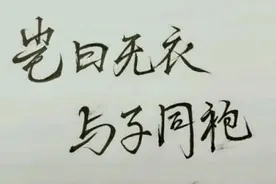 岂曰无衣
与子同袍